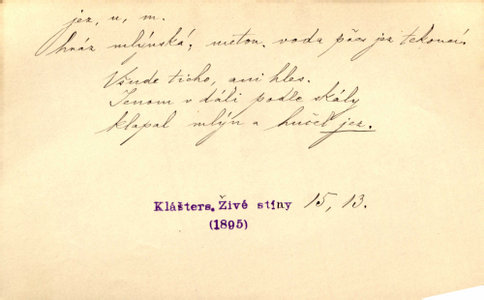 jez, u, m.
hráz mlýnská; meton. voda přes jez tekoucí.
Všude ticho, ani hles.
Jenom v dáli podle skály
klapal mlýn a hučel jez.
Klášters. Živé stíny 15, 13.
(1895)